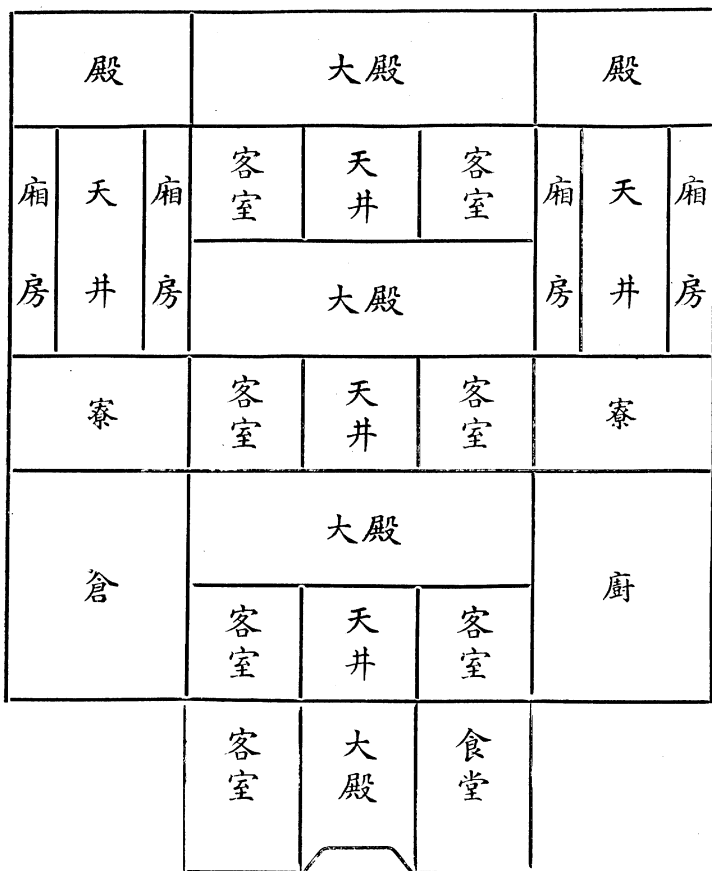 殿 大殿 殿
廂房 天井 廂房 客室 天井 客室 廂房 天井 廂房
大殿
寮 客室 天井 客室 寮
大殿
倉 廚
客室 天井 客室
客室 大殿 食堂